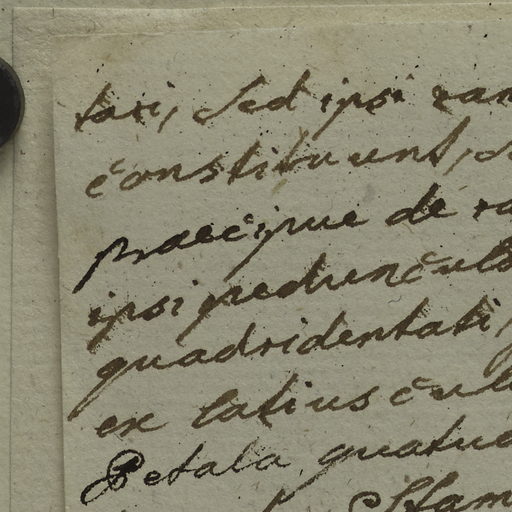 tati, sed ipsi ram
constituunt, s
praecipue de ra
ipsi pedunculo
quadridentati,
ex latiuscul
Petala quatuo
Stam